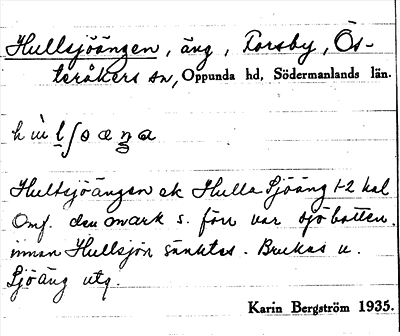 Hullsjöängen, äng, Forsby, Ös-
teråkers sn, Oppunda hd, Södermanlands län.
Hullsjöängen ek Hulla Sjöäng 1-2 hal
Omf. den mark s. förr var sjöbotten.
innan Hullsjön sänktes. Brukas u.
Sjöäng utg.
Karin Bergström 1935.